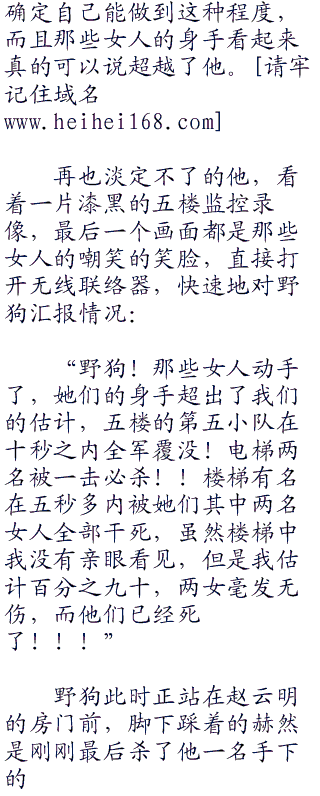 确定自己能做到这种程度，
而且那些女人的身手看起来
真的可以说超越了他。[请牢
记住域名
www.heihei168.com]
再也淡定不了的他，看
着一片漆黑的五楼监控录
像，最后一个画面都是那些
女人的嘲笑的笑脸，直接打
开无线联络器，快速地对野
狗汇报情况：
“野狗！那些女人动手
了，她们的身手超出了我们
的估计，五楼的第五小队在
十秒之内全军覆没！电梯两
名被一击必杀！！楼梯有名
在五秒多内被她们其中两名
女人全部干死，虽然楼梯中
我没有亲眼看见，但是我估
计百分之九十，两女毫发无
伤，而他们已经死
了！！！”
野狗此时正站在赵云明
的房门前，脚下踩着的赫然
是刚刚最后杀了他一名手下
的